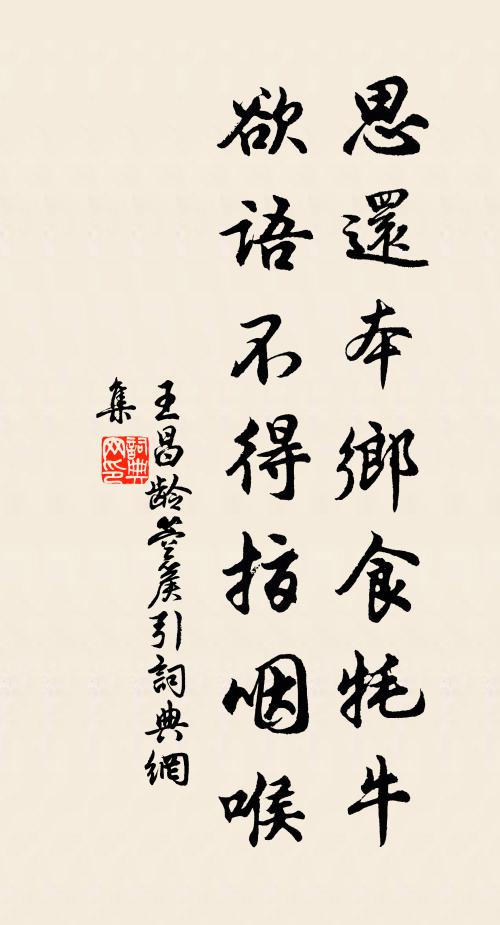 思還本鄉食牦牛
欲語不得指咽喉
王昌龄箜篌引詞典網
集
詞典网印